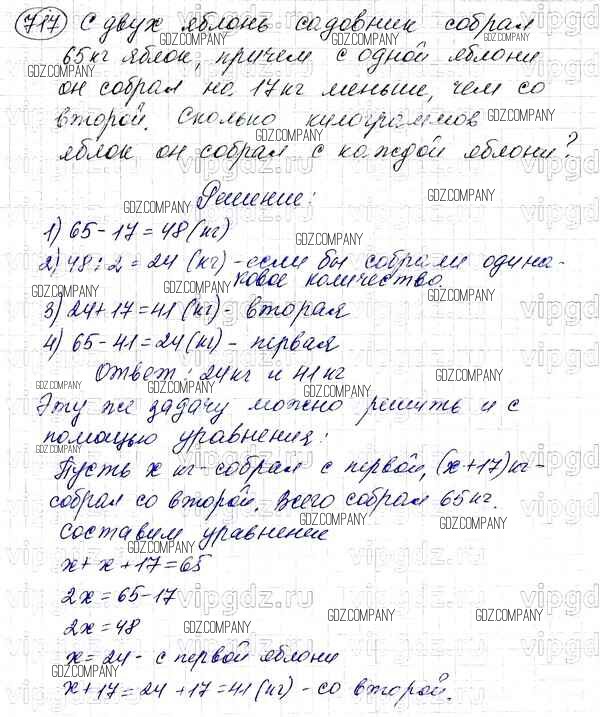 717 С двух яблонь садовник собрал
65 кг яблок, причем с одной яблони
он собрал на 17 кг меньше, чем со
второй. Сколько килограммов
яблок он собрал с каждой яблони?
Решение:
1) 65-17=48(кг)
2) 48:2=24 (кг)-если бы собрали одина-
ковое количество.
3) 24+17=41(кг)- вторая
4) 65-41=24(кг)- первая
Ответ: 24кг и 41кг
Эту же задачу можно решить и с
помощью уравнения:
Пусть x кг-собрал с первой, (x+17)кг-
собрал со второй. Всего собрал 65кг.
Составим уравнение
x+x+17=65
2x=65-17
2x=48
x=24- с первой яблони
x+17=24+17=41(кг)-со второй.
GDZ.COMPANY
vipgdz.ru